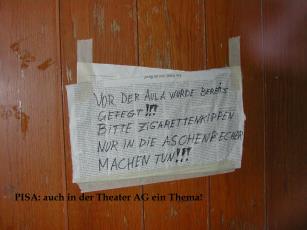 VOR DER AULA WURDE BEREITS
GEFEGT!!!
BITTE ZIGARETTENKIPPEN
NUR IN DIE ASCHENBECHER
MACHEN TUN!!!
PISA: auch in der Theater AG ein Thema!